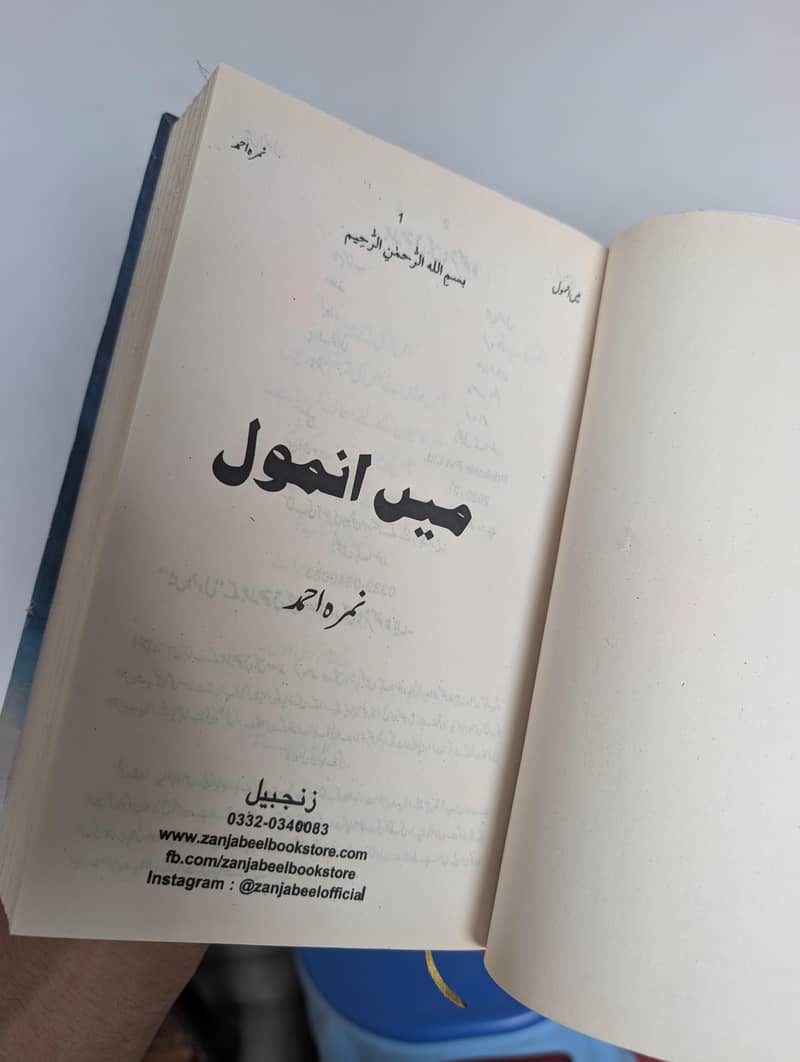 نمرہ احمد
میں انمول
1
بسم اللہ الرَّحمٰنِ الرَّحِیم
میں انمول
نمرہ احمد
زنجبیل
0332-0340083
www.zanjabeelbookstore.com
fb.com/zanjabeelbookstore
Instagram : @zanjabeelofficial